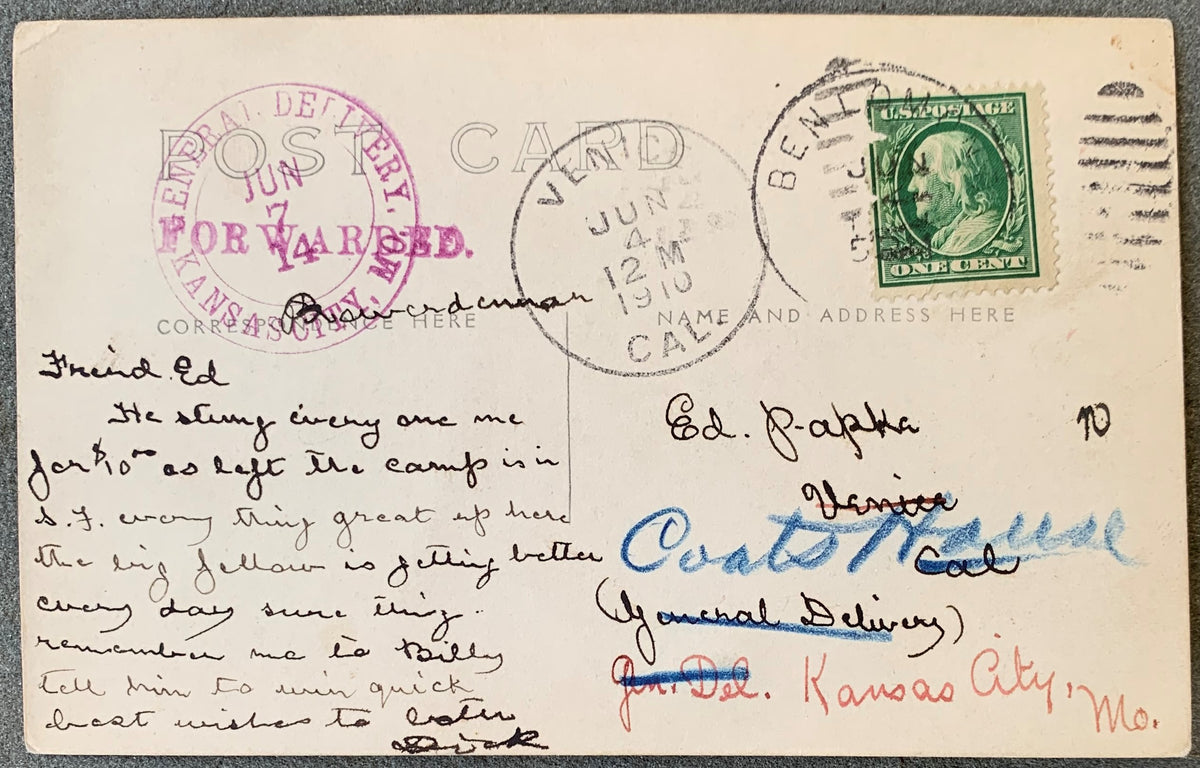 POST CARD
GENERAL DELIVERY,
KANSAS CITY, MO.
JUN
7
14
FORWARDED.
VENI
JUN
4
12 M
1910
CAL.
BEN LOM
JUN
U.S. POSTAGE
ONE CENT
CORRESPONDENCE HERE
NAME AND ADDRESS HERE
Friend Ed
He stung every one me
for $10 00 as left the camp is in
S.F. every thing great up here
the big fellow is getting better
every day sure thing.
remember me to Billy
tell him to win quick
best wishes to
Dick
Ed. Papka
Venice
Coats House
Cal
(General Delivery)
Gen. Del. Kansas City,
Mo.